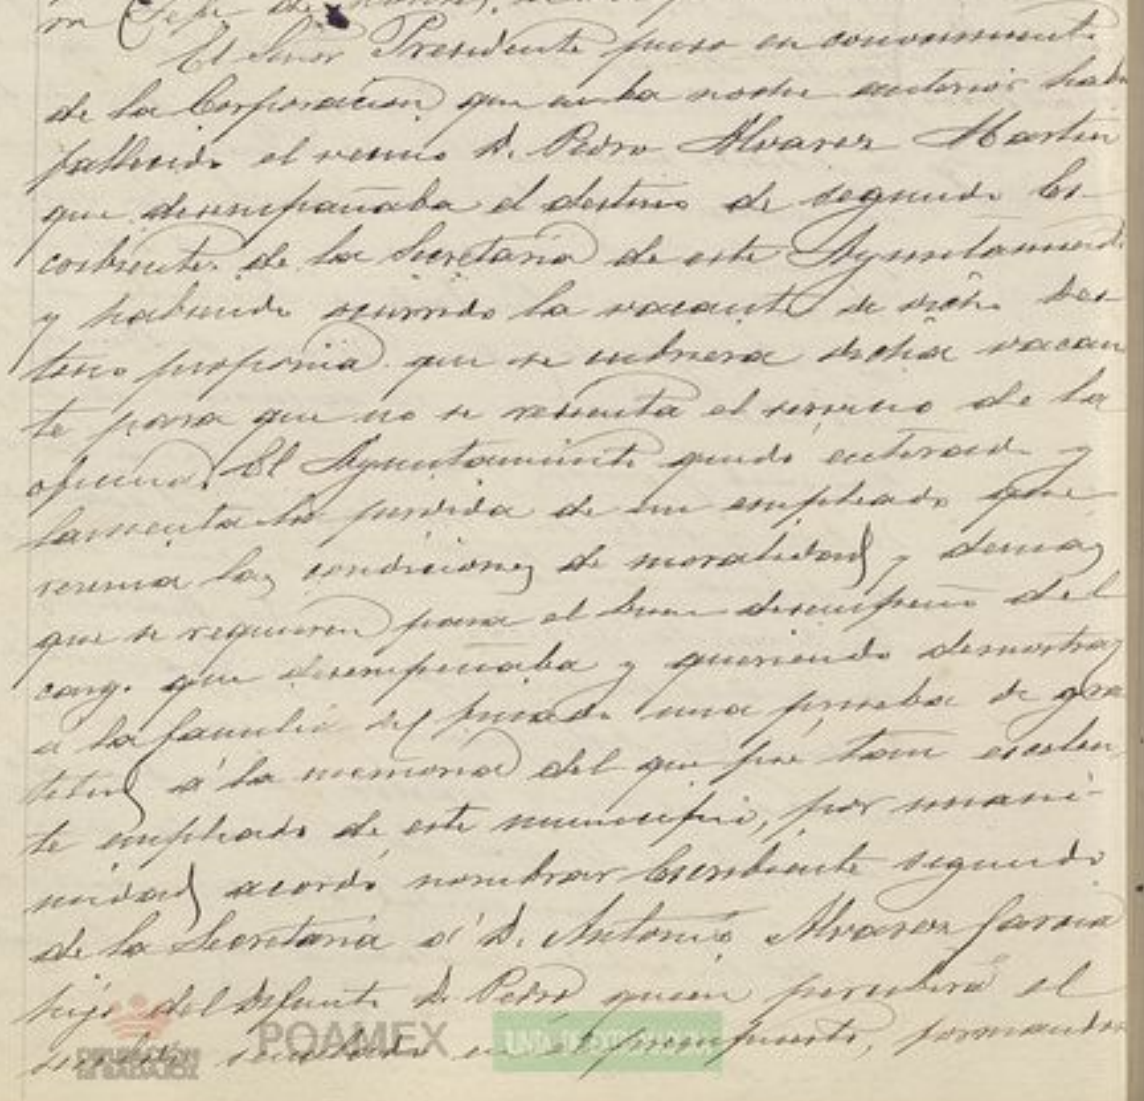 El Señor Presidente puso en conocimiento
de la Corporacion que en la noche anterior habia
fallecido el vecino D. Pedro Alvarez Martin
que desempañaba el destino de segundo Es-
cribiente de la Secretaria de este Ayuntamiento
y habiendo ocurrido la vacante de dicho des-
tino proponia que se cubriera dicha vacan
te para que no se resienta el servicio de la
oficina. El Ayuntamiento quedó enterado y
lamenta la perdida de un empleado que
reunia las condiciones de moralidad y demas
que se requieren para el buen desempeño del
cargo que desempeñaba y queriendo demostrar
a la familia del finado una prueba de gra
titud á la memoria del que fué tan escelen
te empleado de este municipio, por unani-
midad acordó nombrar Escribiente segundo
de la Secretaria á D. Antonio Alvarez Garcia
hijo del difunto D. Pedro quien percibirá el
sueldo señalado en el presupuesto, formando
POAMEX
DIPUTACIÓN
DE BADAJOZ